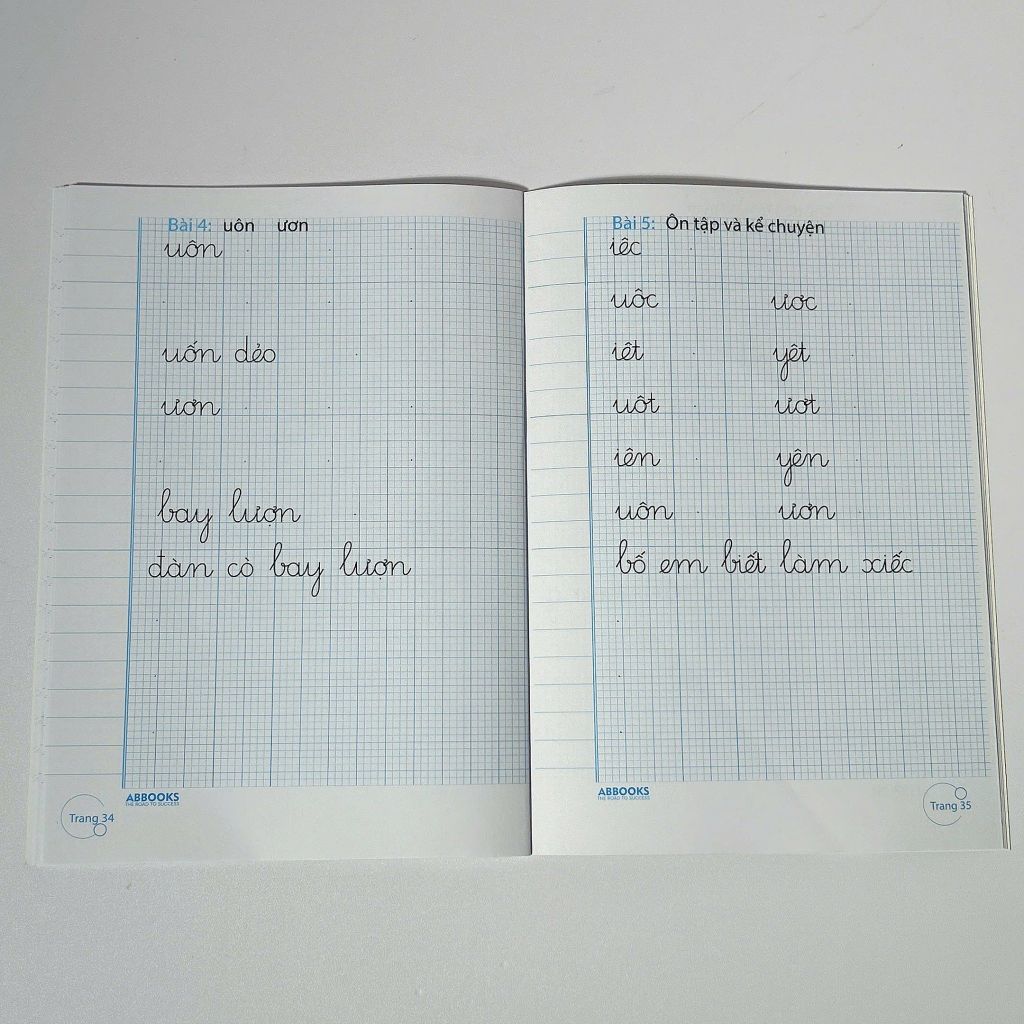 Bài 4: uôn ươn
uôn
uốn dẻo
ươn
bay lượn
đàn cò bay lượn
ABBOOKS
THE ROAD TO SUCCESS
Trang 34
Bài 5: Ôn tập và kể chuyện
iêc
uôc ươc
iêt yêt
uôt ươt
iên yên
uôn ươn
bố em biết làm xiếc
ABBOOKS
THE ROAD TO SUCCESS
Trang 35